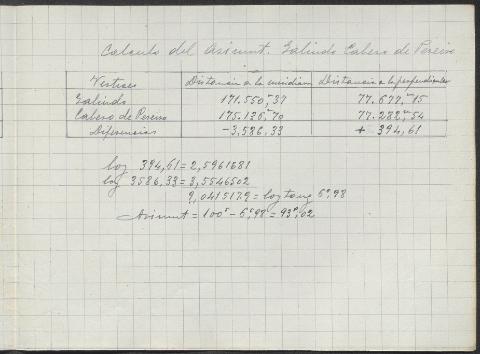 Calculo del Asimut. Galindo Cabezo de Pereiro
Vertices Distancia a la meridiana Distancia a la perpendicular
Galindo 171.550,37 77.677,15
Cabezo de Pereiro 175.136,70 77.282,54
Diferencias -3,586,33 + 394,61
log 394,61 = 2,5961681
log 3586,33 = 3,5546502
9,0415179 = log tang 6g,98
Asimut = 100g - 6g,98 = 93g,02